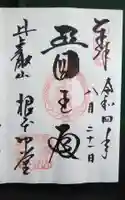 奉拝
令和四年
八月二十一日
医王殿
比叡山
根本中堂